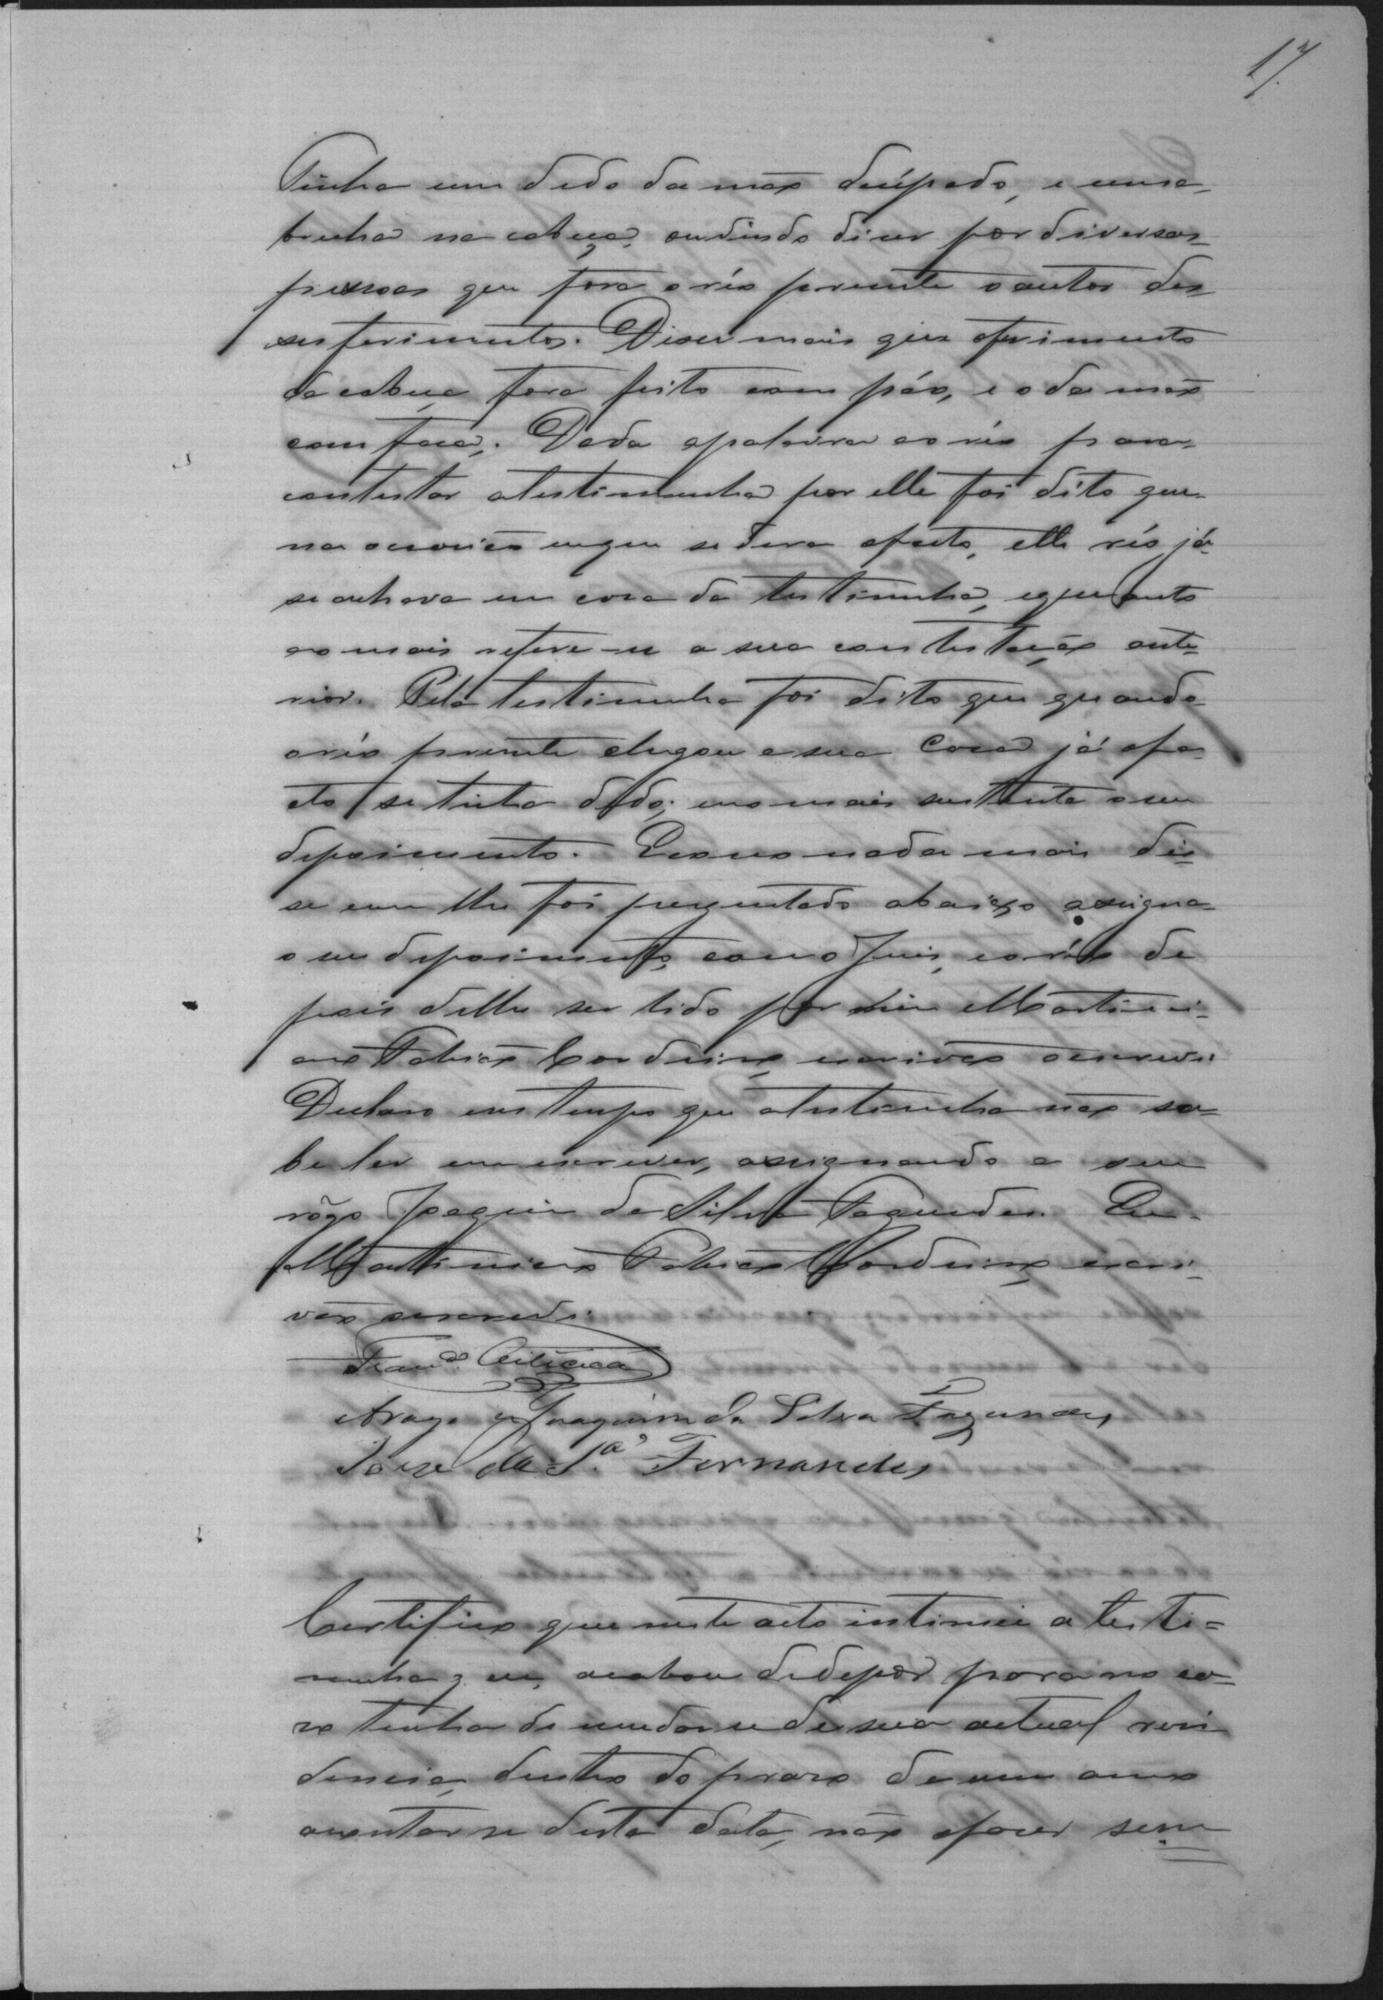 17
Tinha um dedo da mão decepado, e uma
brecha na cabeça, ouvindo dizer por diversas
pessoas que fora o réo presente o autor des
ses ferimentos. Disse mais que o ferimento
da cabeça fora feito com páo, e o da mão
com faca. Dada a palavra ao réo para
contestar a testimunha por elle foi dito que
na occasião em que se dera o facto, elle réo já
se achava em casa da testimunha, e quanto
ao mais refere-se a sua contestação ante-
rior. Pela testimunha foi dito que quando
o réo presente chegou a sua casa já o fa
cto se tinha dado, e no mais sustenta o seu
depoimento. E como nada mais dis-
se nem lhe foi perguntado abaixo assigna
o seu depoimento, com o Juiz, e o réo de
pois delle ser lido por mim Martini-
ano Tobias Cordeiro, escrivão o escrevi.
Declaro em tempo que a testimunha não sa-
be ler nem escrever, assignando a seu
rôgo Joaquim da Silva Fagundes. Eu
Martiniano Tobias Cordeiro, escri-
vão o escrevi.
Franco
Arogo Joaquim da Silva Fagundes
José da Sa Fernandes
Certifico que neste acto intimei a teste-
munha que acabou de depôr para no ca-
zo tenha de mudar-se de sua actual resi
dencia, dentro do prazo de um anno
a contar-se desta data, não o fazer sem